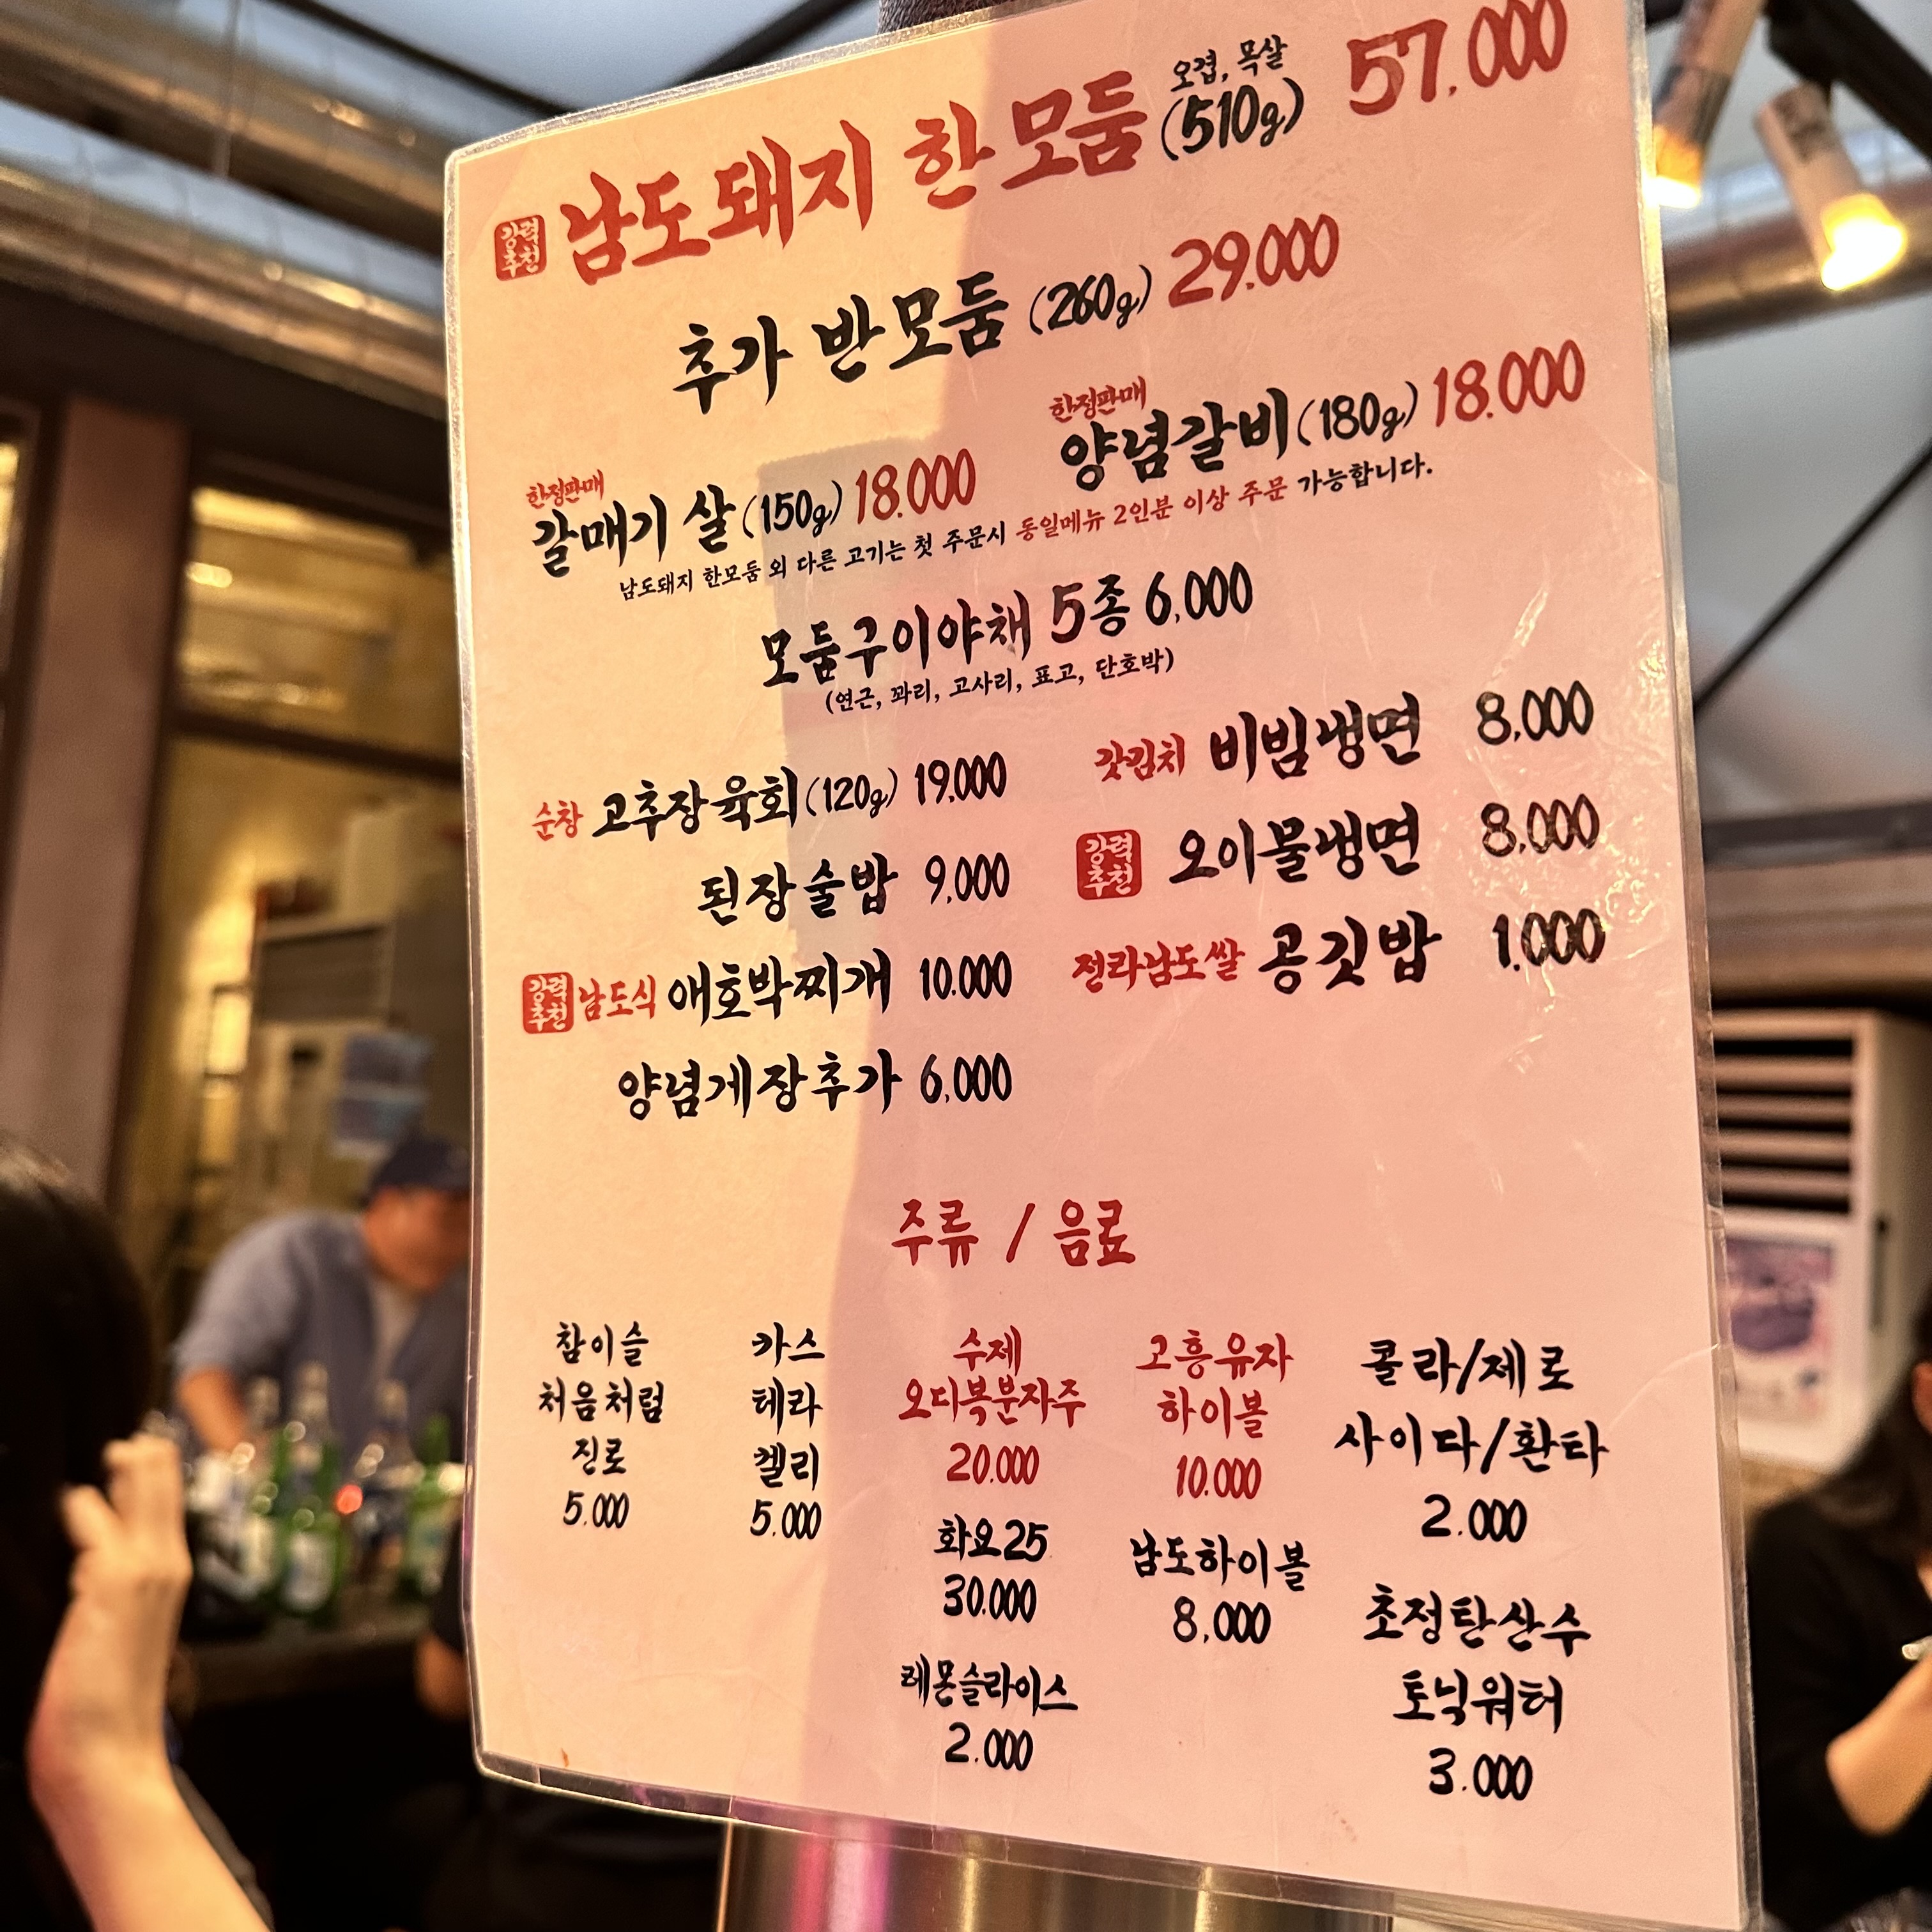 강력추천 남도돼지 한모둠 오겹, 목살 (510g) 57,000
추가 반모둠 (260g) 29,000
한정판매 갈매기 살 (150g) 18,000
한정판매 양념갈비 (180g) 18,000
남도돼지 한모둠 외 다른 고기는 첫 주문시 동일메뉴 2인분 이상 주문 가능합니다.
모둠구이야채 5종 6,000
(연근, 꽈리, 고사리, 표고, 단호박)
순창 고추장육회 (120g) 19,000
된장술밥 9,000
강력추천 남도식 애호박찌개 10.000
양념게장추가 6,000
갓김치 비빔냉면 8,000
강력추천 오이물냉면 8,000
전라남도쌀 공깃밥 1,000
주류 / 음료
참이슬
처음처럼
진로
5.000
카스
테라
켈리
5.000
수제
오디복분자주
20.000
화요25
30.000
레몬슬라이스
2.000
고흥유자
하이볼
10.000
남도하이볼
8,000
콜라/제로
사이다/환타
2.000
초정탄산수
토닉워터
3.000